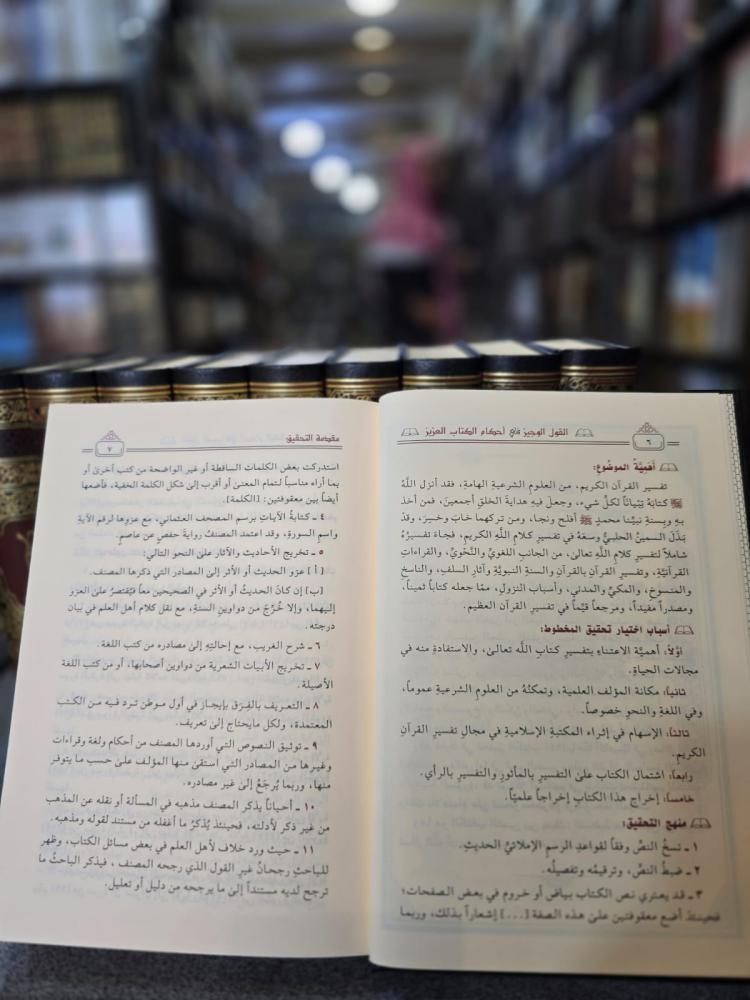 ٦
القول الوجيز في أحكام الكتاب العزيز
أهميَّة الموضوع:
تفسير القرآن الكريم، من العلوم الشرعيةِ الهامةِ، فقد أنزل اللَّهُ
ﷺ كتابَهُ تِبْيَاناً لكلِّ شيء، وجعلَ فيهِ هدايةَ الخلقِ أجمعينَ، فمن أخذ
بهِ وبسنةِ نبيِّنا محمدٍ ﷺ أفلح ونجا، ومن تركهما خابَ وخسِرَ، وقدْ
بَذَلَ السمينُ الحلبيُّ وسعَهُ في تفسيرِ كلامِ اللَّهِ الكريمِ، فجاءَ تفسيرُهُ
شاملاً لتفسيرِ كلامِ اللَّهِ تعالى، من الجانبِ اللغويِّ والنَّحْويِّ، والقراءاتِ
القرآنيَّةِ، وتفسيرِ القرآنِ بالقرآنِ والسنةِ النبويَّةِ وآثارِ السلفِ، والناسخِ
والمنسوخِ، والمكيِّ والمدنيِّ، وأسبابِ النزولِ، ممّا جعله كتاباً ثميناً،
ومصدراً مفيداً، ومرجعاً قيِّماً في تفسيرِ القرآنِ العظيم.
أسباب اختيار تحقيق المخطوط:
أوَّلاً: أهميَّة الاعتناءِ بتفسيرِ كتابِ اللَّه تعالىٰ، والاستفادةِ منه في
مجالات الحياةِ.
ثانياً: مكانة المؤلف العلمية، وتمكنُهُ من العلومِ الشرعيةِ عموماً،
وفي اللغةِ والنحوِ خصوصاً.
ثالثاً: الإسهام في إثراء المكتبةِ الإسلاميةِ في مجالِ تفسيرِ القرآنِ
الكريم.
رابعاً: اشتمال الكتاب علىٰ التفسيرِ بالمأثورِ والتفسيرِ بالرأي.
خامساً: إخراج هذا الكتابِ إخراجاً علميّاً.
منهج التحقيق:
١ ـ نسخُ النصِّ وفقاً لقواعدِ الرسم الإملائيِّ الحديثِ.
٢ ـ ضبطُ النصِّ، وترقيمُه وتفصيلُه.
٣ ـ قد يعتري نص الكتاب بياض أو خروم في بعض الصفحات؛
فحينئذٍ أضع معقوفتين علىٰ هذه الصفة [...] إشعاراً بذلك، وربما
مقدمة التحقيق
٧
استدركت بعض الكلمات الساقطة أو غير الواضحة من كتب أخرىٰ أو
بما أراه مناسباً لتمام المعنىٰ أو أقرب إلىٰ شكل الكلمة الخفية، فأضعها
أيضاً بين معقوفتين: [الكلمة].
٤ ـ كتابةُ الآياتِ برسمِ المصحف العثماني، مع عزوها لرقم الآيةِ
واسم السورةِ، وقد اعتمد المصنفُ روايةَ حفصٍ عن عاصمٍ.
٥ ـ تخريج الأحاديث والآثار علىٰ النحو التالي:
[ أ ] عزو الحديث أو الأثر إلىٰ المصادر التي ذكرها المصنف.
[ب] إن كانَ الحديثُ أو الأثر في الصحيحينِ معاً فيُقتصرُ علىٰ العزوِ
إليهما، وإلا خُرِّجَ من دواوينِ السنةِ، مع نقل كلام أهل العلم في بيان
درجته.
٦ ـ شرح الغريب، مع إحالتِهِ إلىٰ مصادره من كتب اللغة.
٧ ـ تخريج الأبيات الشعرية من دواوين أصحابها، أو من كتب اللغة
الأصيلة.
٨ ـ التعريف بالفِرَق بإيجازٍ في أول موطن ترد فيه من الكتب
المعتمدة، ولكل مايحتاج إلىٰ تعريف.
٩ ـ توثيق النصوص التي أوردها المصنف من أحكام ولغة وقراءات
وغيرها من المصادر التي استقىٰ منها المؤلف علىٰ حسب ما يتوفر
منها، وربما يُرجَعُ إلىٰ غير مصادره.
١٠ ـ أحياناً يذكر المصنف مذهبه في المسألة أو نقله عن المذهب
من غير ذكر لأدلته، فحينئذٍ يُذكرُ ما أغفله من مستند لقوله ومذهبه.
١١ ـ حيث ورد خلاف لأهل العلم في بعض مسائل الكتاب، وظهر
للباحثِ رجحانُ غيرِ القول الذي رجحه المصنف ، فيذكر الباحثُ ما
ترجح لديه مستنداً إلىٰ ما يرجحه من دليل أو تعليل.